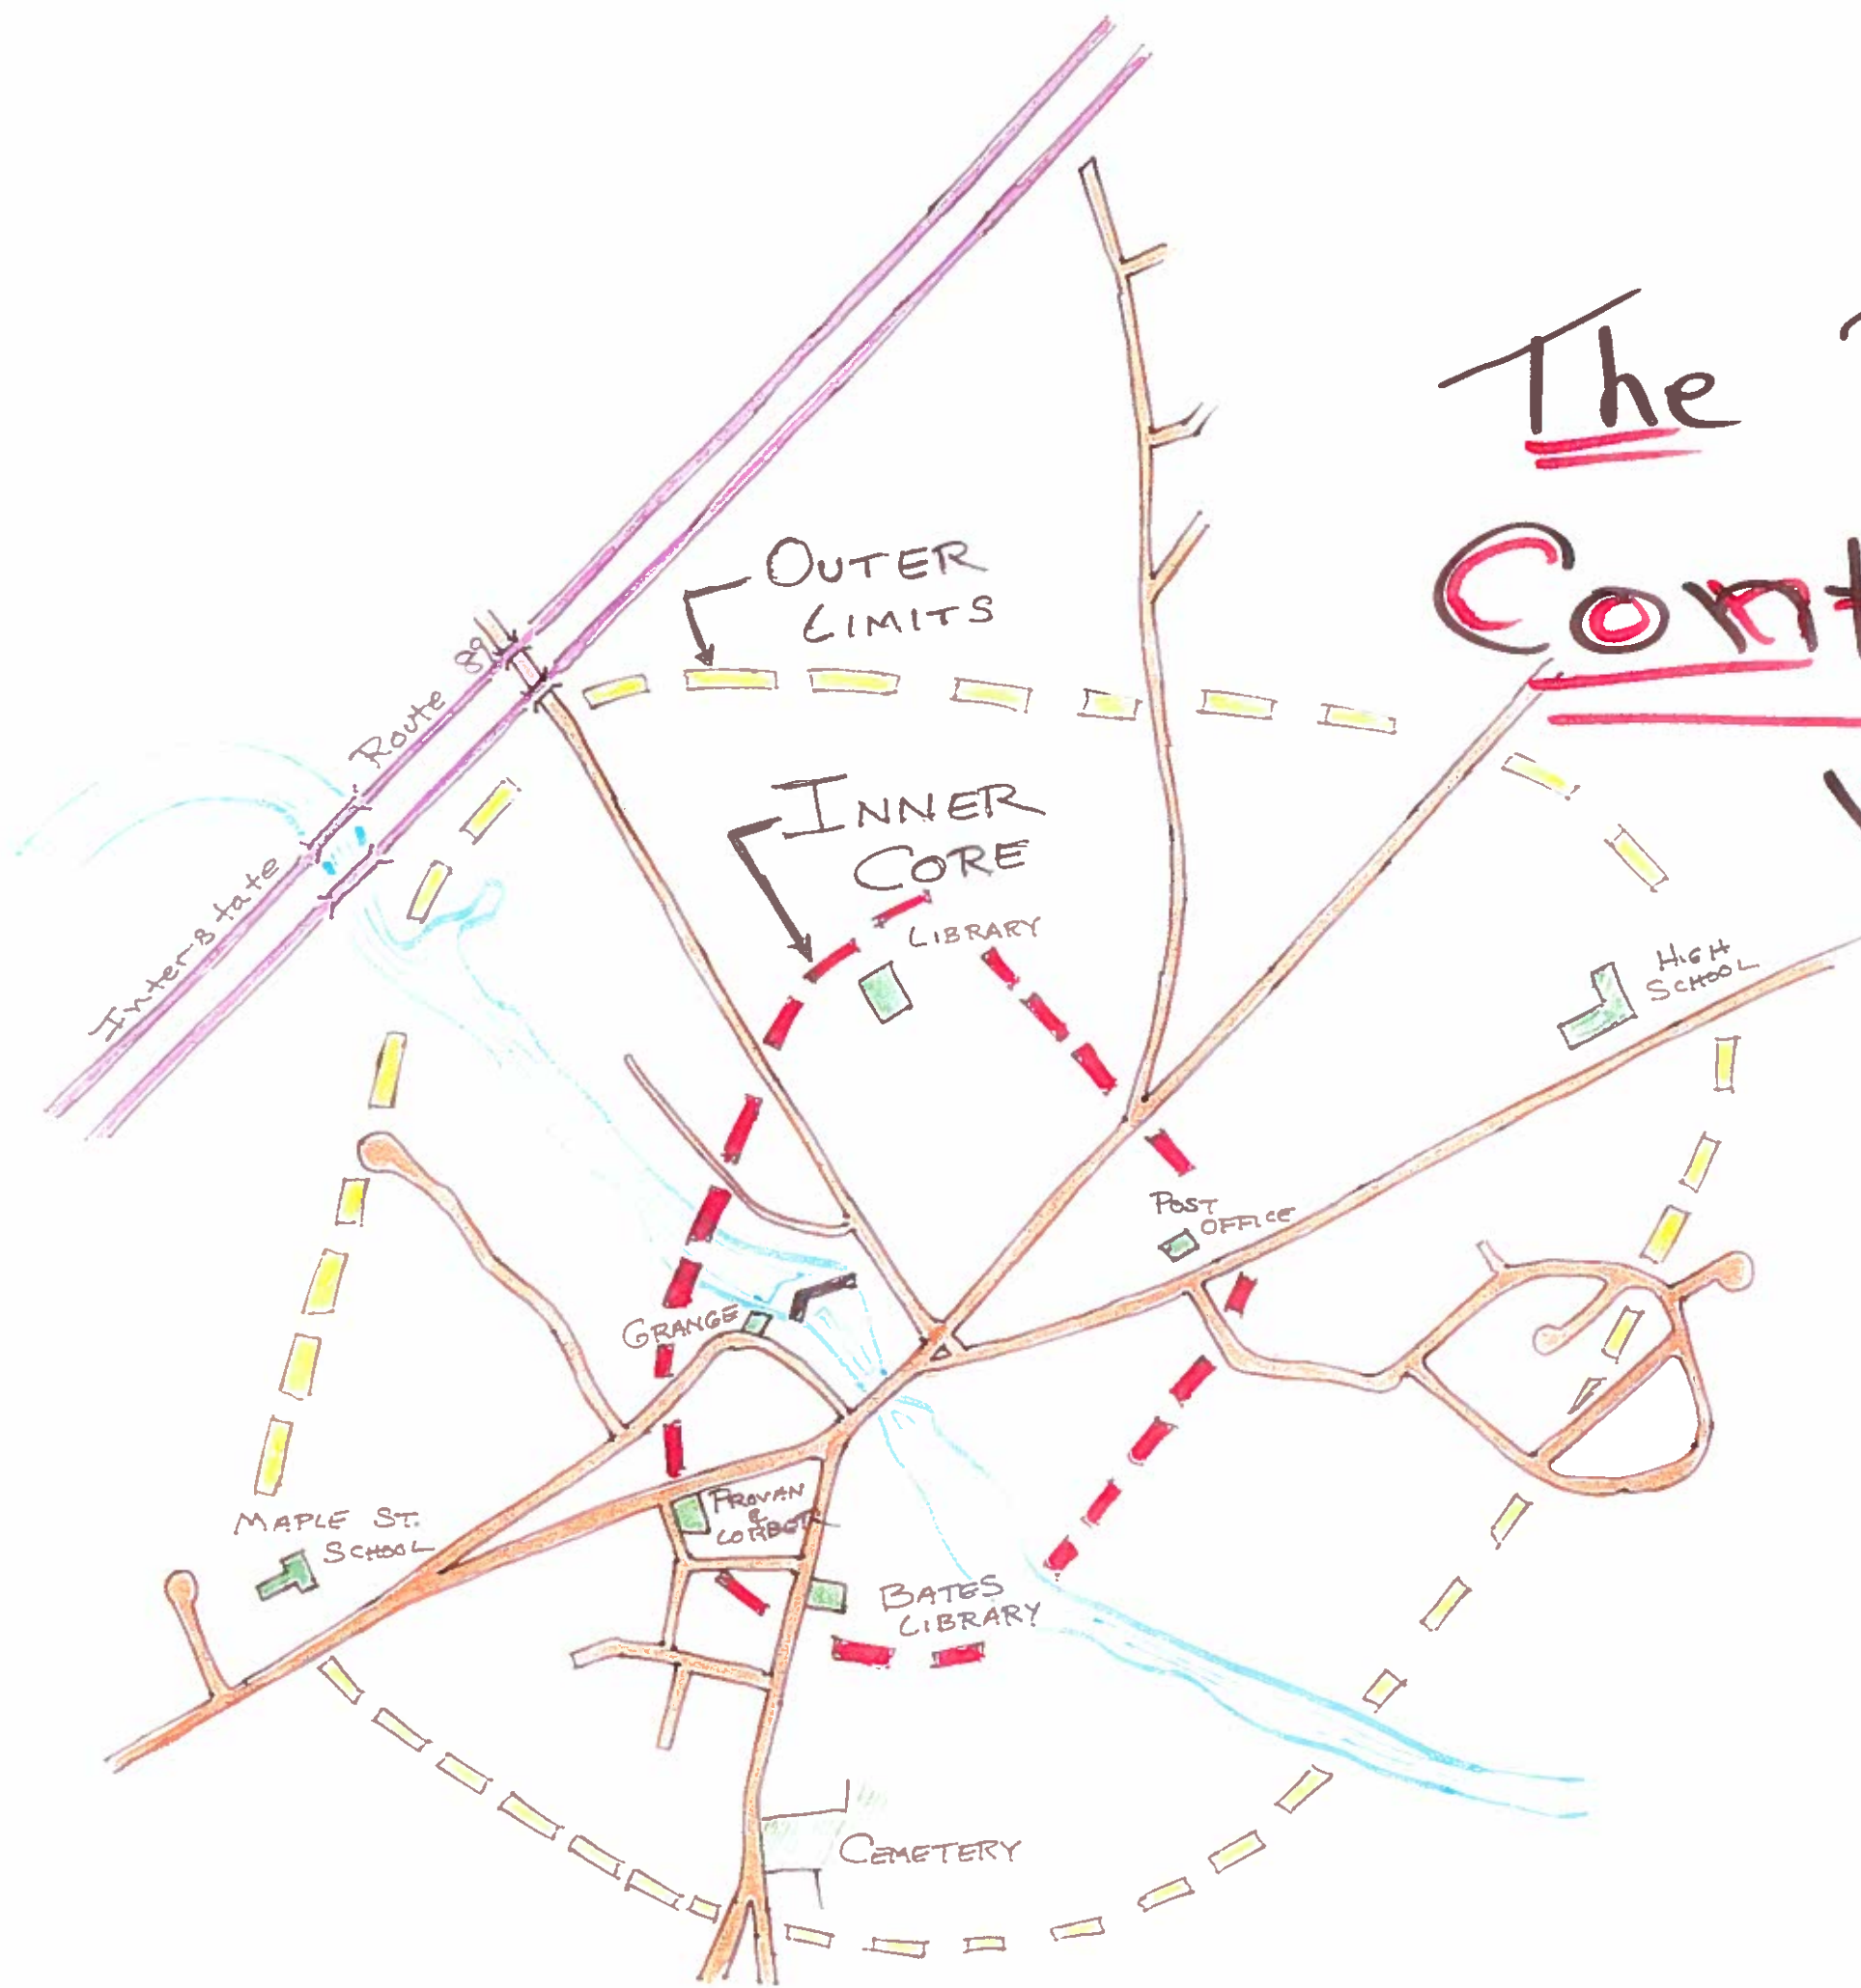 The
Cont
OUTER
LIMITS
Inter-state Route 89
INNER
CORE
LIBRARY
HIGH
SCHOOL
POST
OFFICE
GRANGE
PROVAN
&
LORBER
MAPLE ST.
SCHOOL
BATES
LIBRARY
CEMETERY